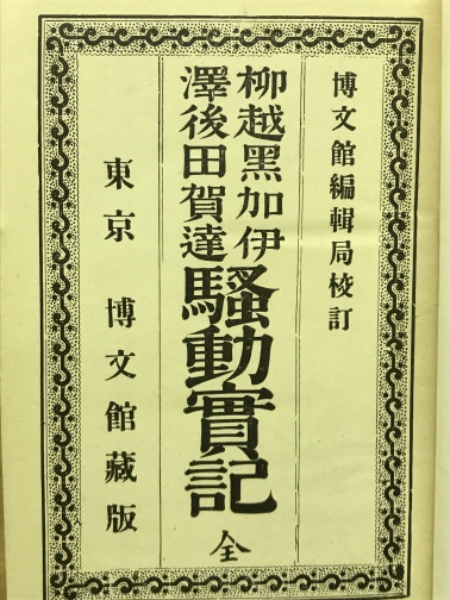 博文館編輯局校訂
柳澤越後黑田加賀伊達騷動實記 全
東京 博文館藏版